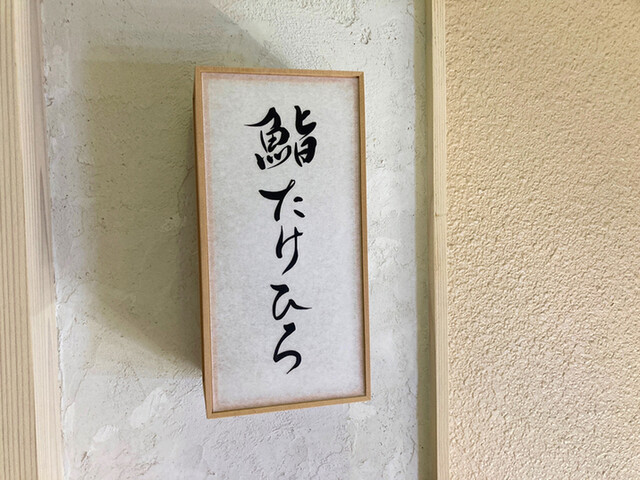 鮨たけひろ